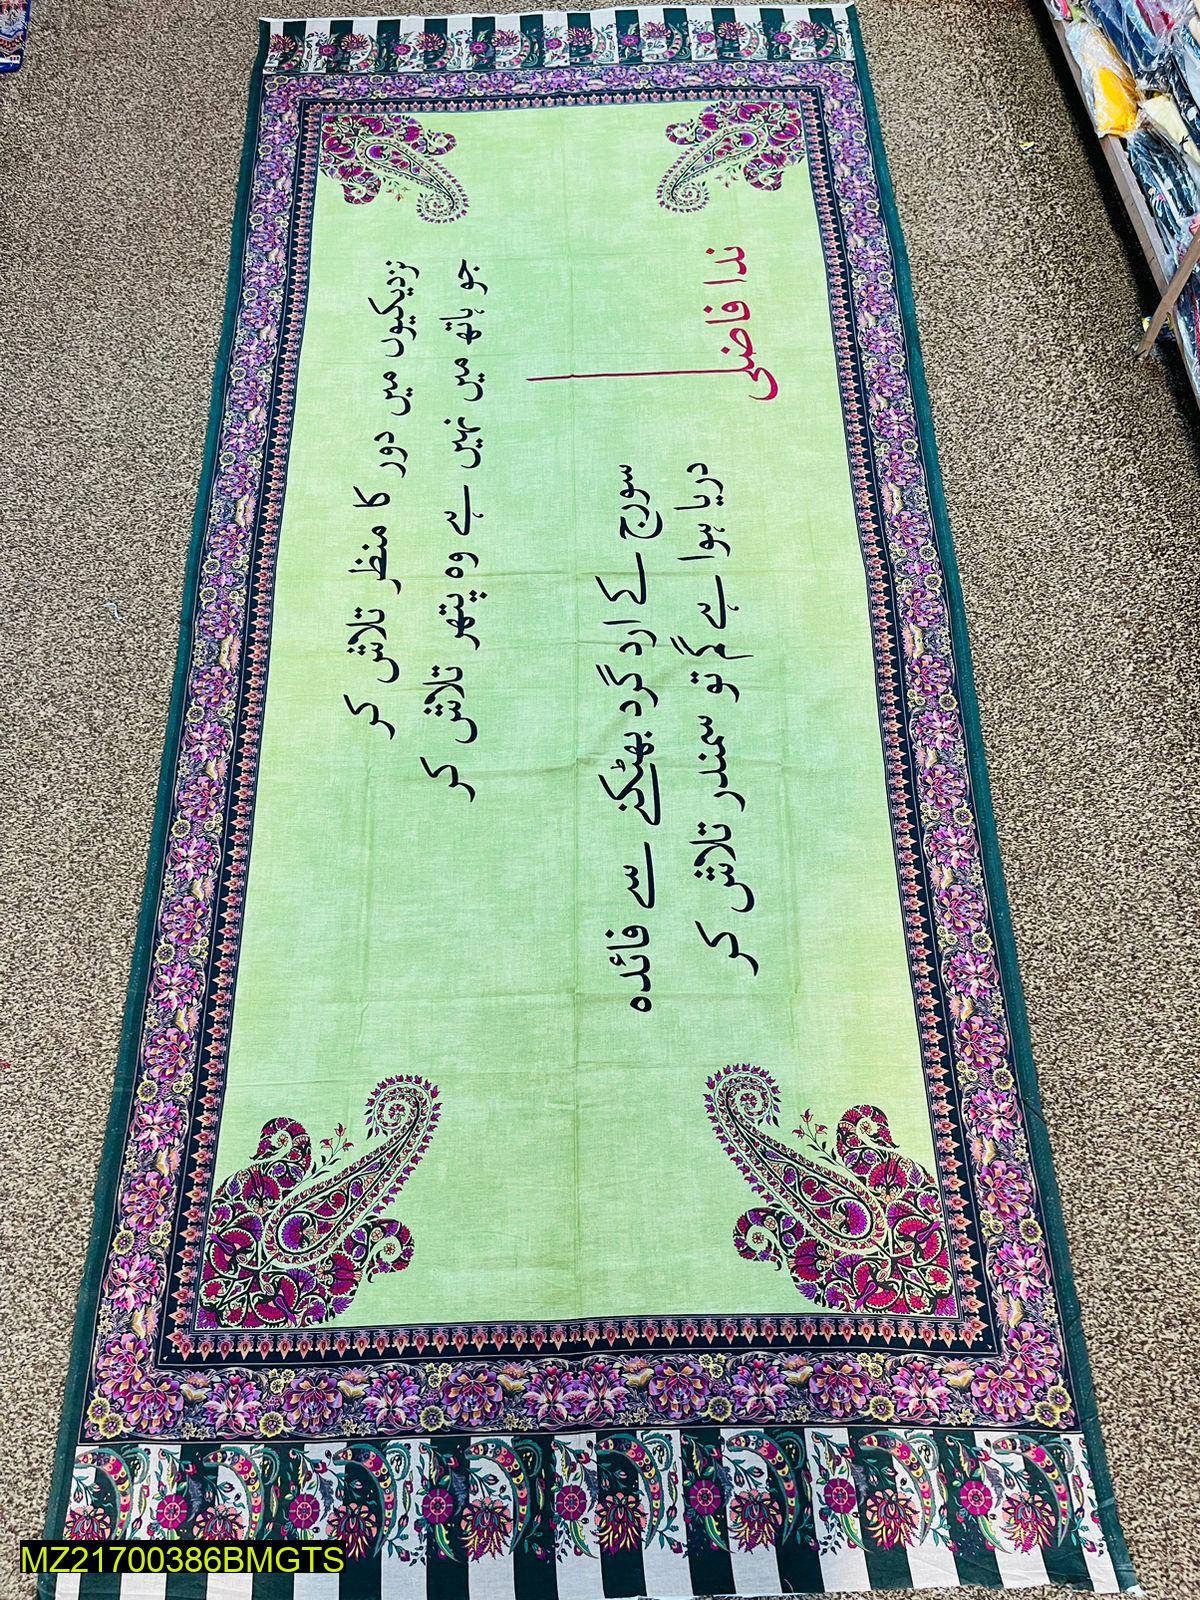 نزدیکیوں میں دور کا منظر تلاش کر
جو ہاتھ میں نہیں ہے وہ پتھر تلاش کر
سورج کے ارد گرد بھٹکنے سے فائدہ
دریا ہوا ہے گم تو سمندر تلاش کر
ندا فاضلی
MZ21700386BMGTS